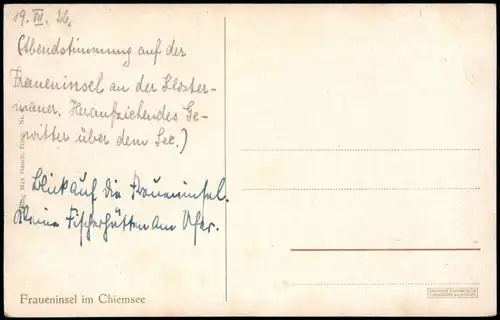 19. VII. 26.
(Abendstimmung auf der
Fraueninsel an der Kloster-
mauer, Heraufziehendes Ge-
witter über dem See.)
Blick auf die Fraueninsel.
Kleine Fischerhütten am Ufer.
Fraueninsel im Chiemsee